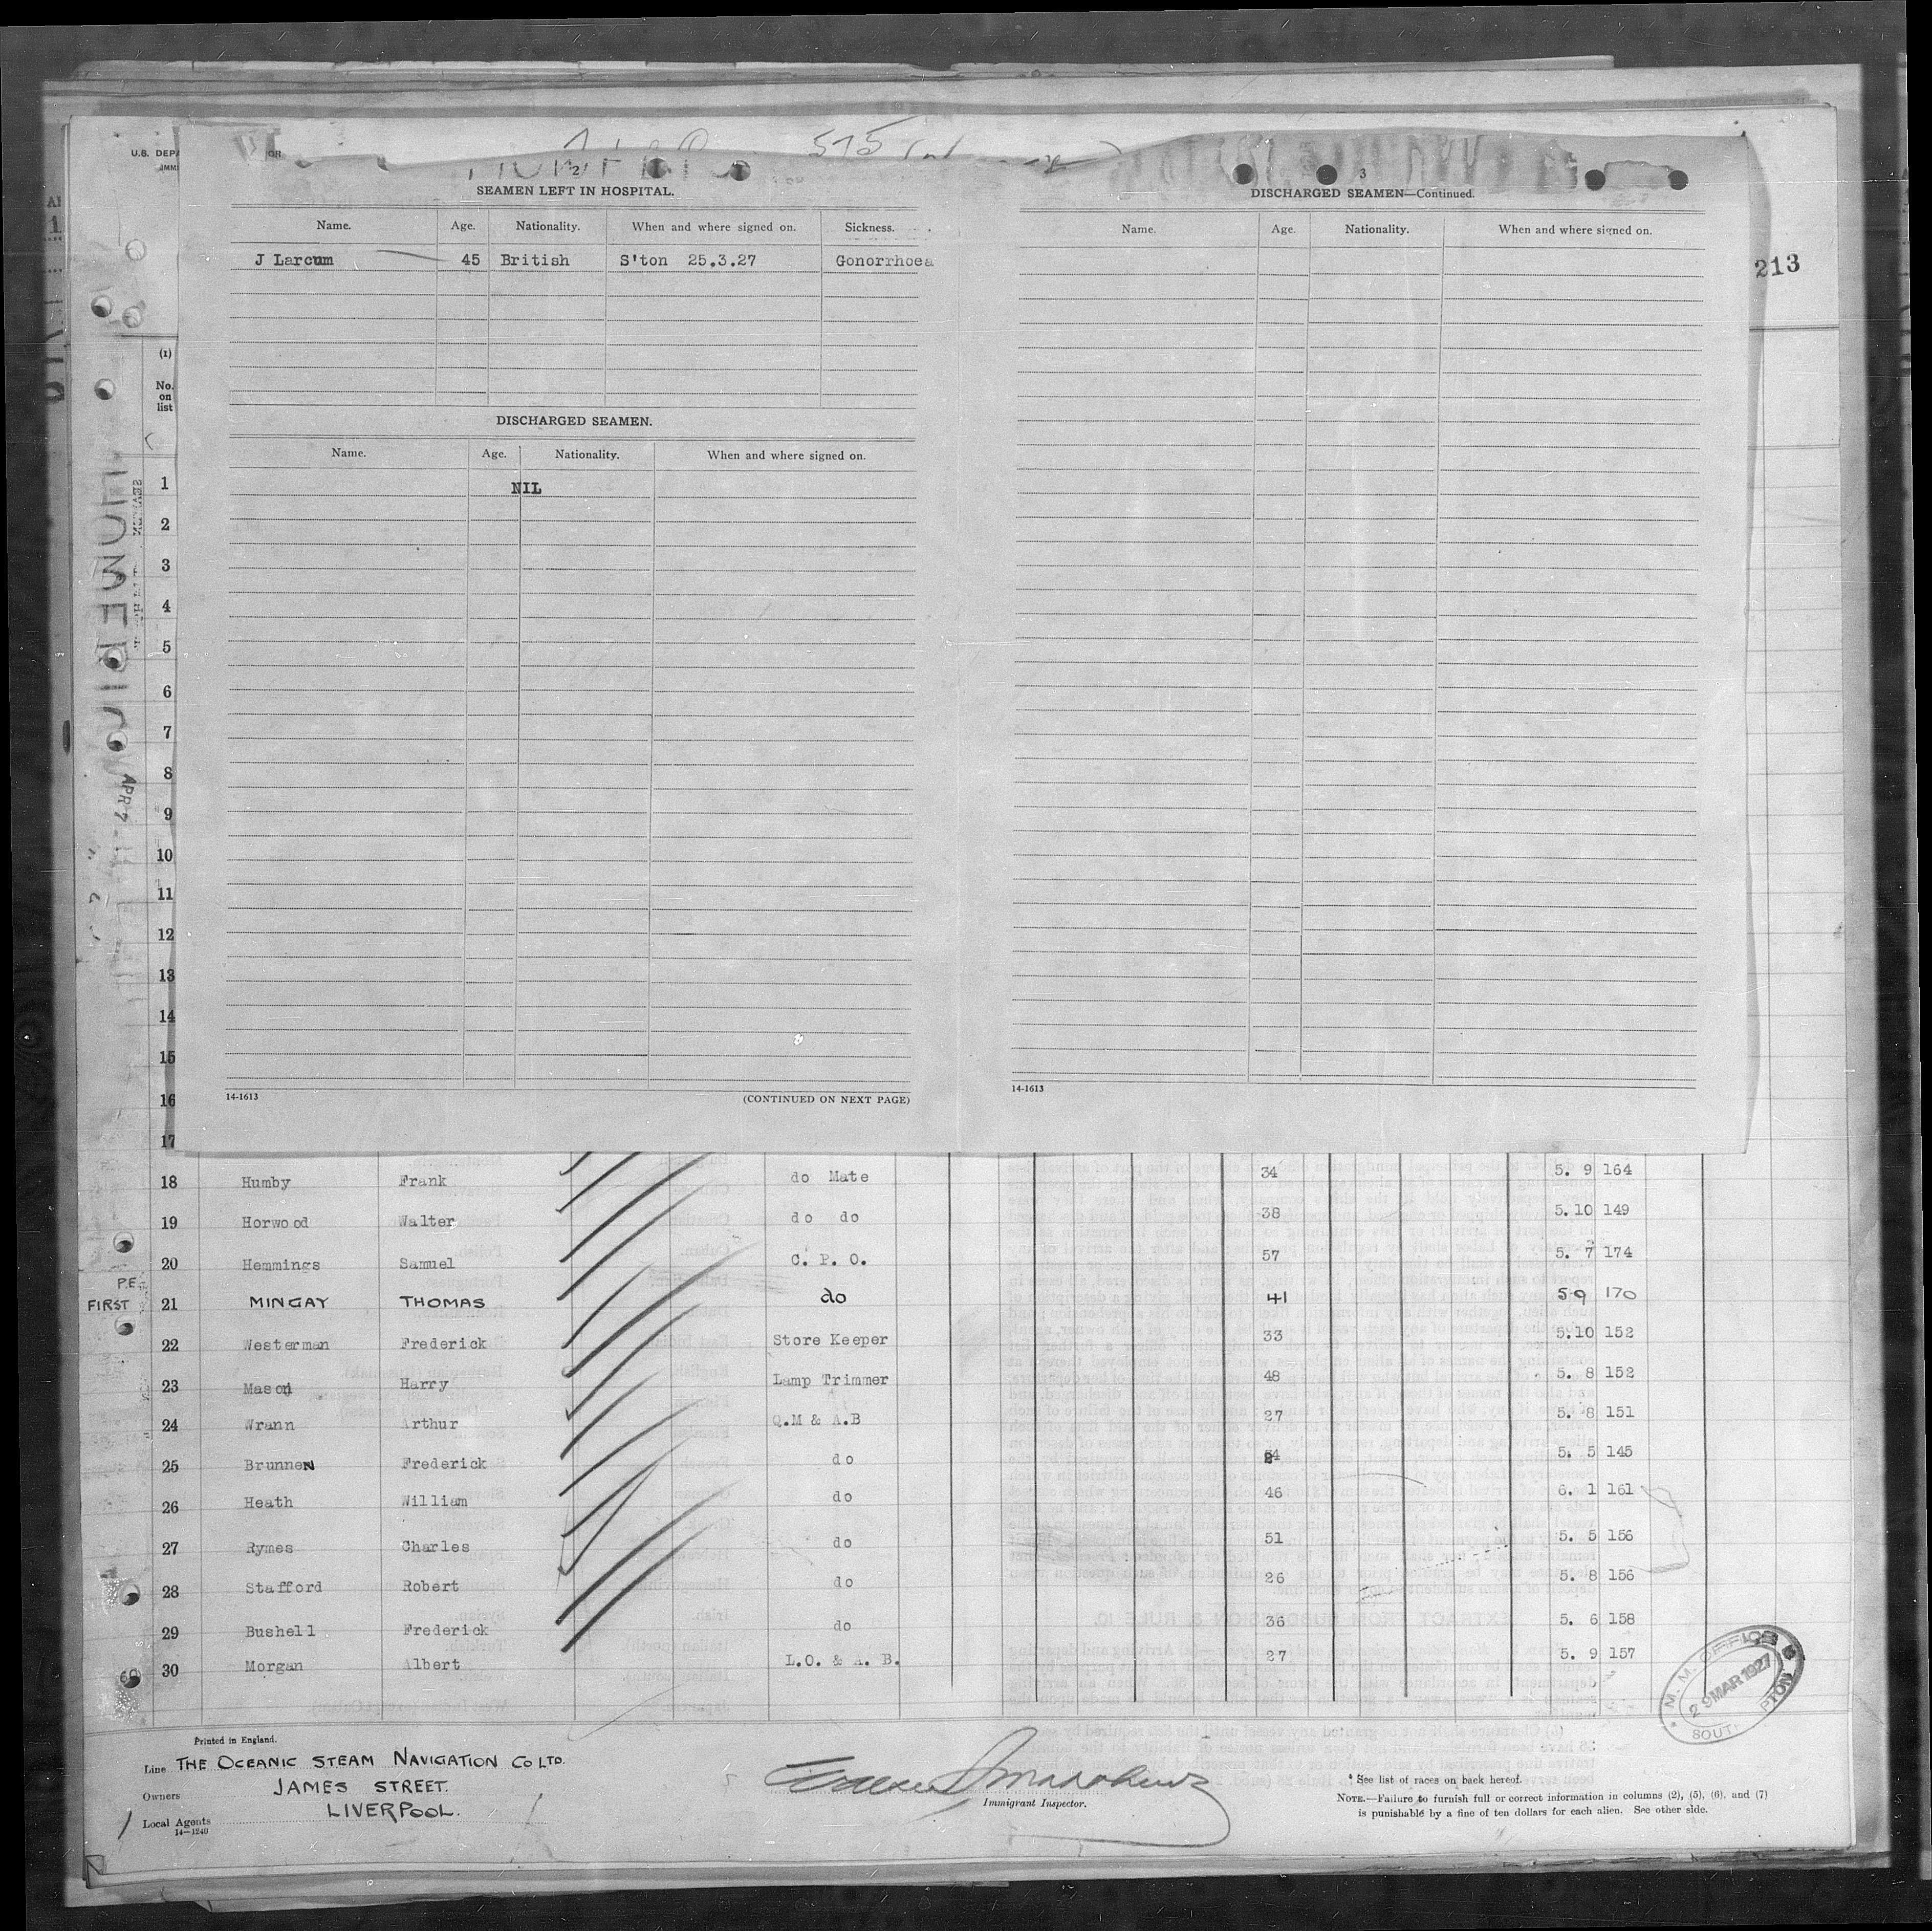 U.S. DEPA
IMMI
OR
515
2
SEAMEN LEFT IN HOSPITAL.
Name. Age. Nationality. When and where signed on. Sickness.
J Larcum 45 British S'ton 25.3.27 Gonorrhoea
DISCHARGED SEAMEN.
Name. Age. Nationality. When and where signed on.
NIL
14-1613
(CONTINUED ON NEXT PAGE)
3
DISCHARGED SEAMEN—Continued.
Name. Age. Nationality. When and where signed on.
14-1613
213
(1)
No. on list
HOMERIC
APR 7
1
2
3
4
5
6
7
8
9
10
11
12
13
14
15
16
17
18 Humby Frank do Mate 34 5. 9 164
19 Horwood Walter do do 38 5.10 149
20 Hemmings Samuel C. P. O. 57 5. 7 174
P.E.
FIRST 21 MINGAY THOMAS do 41 5 9 170
22 Westerman Frederick Store Keeper 33 5.10 152
23 Mason Harry Lamp Trimmer 48 5. 8 152
24 Wrann Arthur Q.M & A.B 27 5. 8 151
25 Brunnen Frederick do 5. 5 145
26 Heath William do 46 6. 1 161
27 Rymes Charles do 51 5. 5 156
28 Stafford Robert do 26 5. 8 156
29 Bushell Frederick do 36 5. 6 158
30 Morgan Albert L.O. & A. B. 27 5. 9 157
M. M. OFFICE
29 MAR 1927
SOUT PTON
Printed in England.
Line THE OCEANIC STEAM NAVIGATION CO LTD.
JAMES STREET.
Owners
LIVERPOOL.
Local Agents
14—1240
Immigrant Inspector.
* See list of races on back hereof.
NOTE.—Failure to furnish full or correct information in columns (2), (5), (6), and (7)
is punishable by a fine of ten dollars for each alien. See other side.